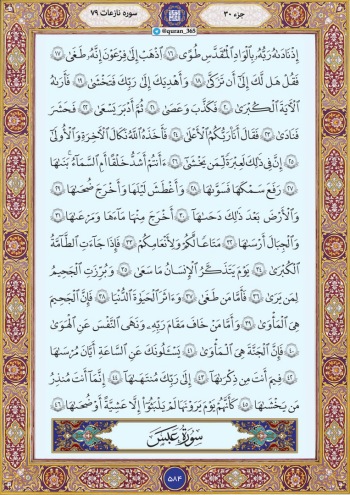 سوره نازعات ۷۹
جزء ۳۰
@quran_365
إِذْ نَادَىٰهُ رَبُّهُۥ بِٱلْوَادِ ٱلْمُقَدَّسِ طُوًى ۝١٦ ٱذْهَبْ إِلَىٰ فِرْعَوْنَ إِنَّهُۥ طَغَىٰ ۝١٧
فَقُلْ هَل لَّكَ إِلَىٰٓ أَن تَزَكَّىٰ ۝١٨ وَأَهْدِيَكَ إِلَىٰ رَبِّكَ فَتَخْشَىٰ ۝١٩ فَأَرَىٰهُ
ٱلْـَٔايَةَ ٱلْكُبْرَىٰ ۝٢٠ فَكَذَّبَ وَعَصَىٰ ۝٢١ ثُمَّ أَدْبَرَ يَسْعَىٰ ۝٢٢ فَحَشَرَ
فَنَادَىٰ ۝٢٣ فَقَالَ أَنَا۠ رَبُّكُمُ ٱلْأَعْلَىٰ ۝٢٤ فَأَخَذَهُ ٱللَّهُ نَكَالَ ٱلْـَٔاخِرَةِ وَٱلْأُولَىٰٓ
۝٢٥ إِنَّ فِى ذَٰلِكَ لَعِبْرَةً لِّمَن يَخْشَىٰٓ ۝٢٦ ءَأَنتُمْ أَشَدُّ خَلْقًا أَمِ ٱلسَّمَآءُ بَنَىٰهَا
۝٢٧ رَفَعَ سَمْكَهَا فَسَوَّىٰهَا ۝٢٨ وَأَغْطَشَ لَيْلَهَا وَأَخْرَجَ ضُحَىٰهَا ۝٢٩
وَٱلْأَرْضَ بَعْدَ ذَٰلِكَ دَحَىٰهَآ ۝٣٠ أَخْرَجَ مِنْهَا مَآءَهَا وَمَرْعَىٰهَا ۝٣١
وَٱلْجِبَالَ أَرْسَىٰهَا ۝٣٢ مَتَٰعًا لَّكُمْ وَلِأَنْعَٰمِكُمْ ۝٣٣ فَإِذَا جَآءَتِ ٱلطَّآمَّةُ
ٱلْكُبْرَىٰ ۝٣٤ يَوْمَ يَتَذَكَّرُ ٱلْإِنسَٰنُ مَا سَعَىٰ ۝٣٥ وَبُرِّزَتِ ٱلْجَحِيمُ
لِمَن يَرَىٰ ۝٣٦ فَأَمَّا مَن طَغَىٰ ۝٣٧ وَءَاثَرَ ٱلْحَيَوٰةَ ٱلدُّنْيَا ۝٣٨ فَإِنَّ ٱلْجَحِيمَ
هِىَ ٱلْمَأْوَىٰ ۝٣٩ وَأَمَّا مَنْ خَافَ مَقَامَ رَبِّهِۦ وَنَهَى ٱلنَّفْسَ عَنِ ٱلْهَوَىٰ
۝٤٠ فَإِنَّ ٱلْجَنَّةَ هِىَ ٱلْمَأْوَىٰ ۝٤١ يَسْـَٔلُونَكَ عَنِ ٱلسَّاعَةِ أَيَّانَ مُرْسَىٰهَا
۝٤٢ فِيمَ أَنتَ مِن ذِكْرَىٰهَآ ۝٤٣ إِلَىٰ رَبِّكَ مُنتَهَىٰهَآ ۝٤٤ إِنَّمَآ أَنتَ مُنذِرُ
مَن يَخْشَىٰهَا ۝٤٥ كَأَنَّهُمْ يَوْمَ يَرَوْنَهَا لَمْ يَلْبَثُوٓا۟ إِلَّا عَشِيَّةً أَوْ ضُحَىٰهَا ۝٤٦
سُورَةُ عَبَسَ
۵۸۴